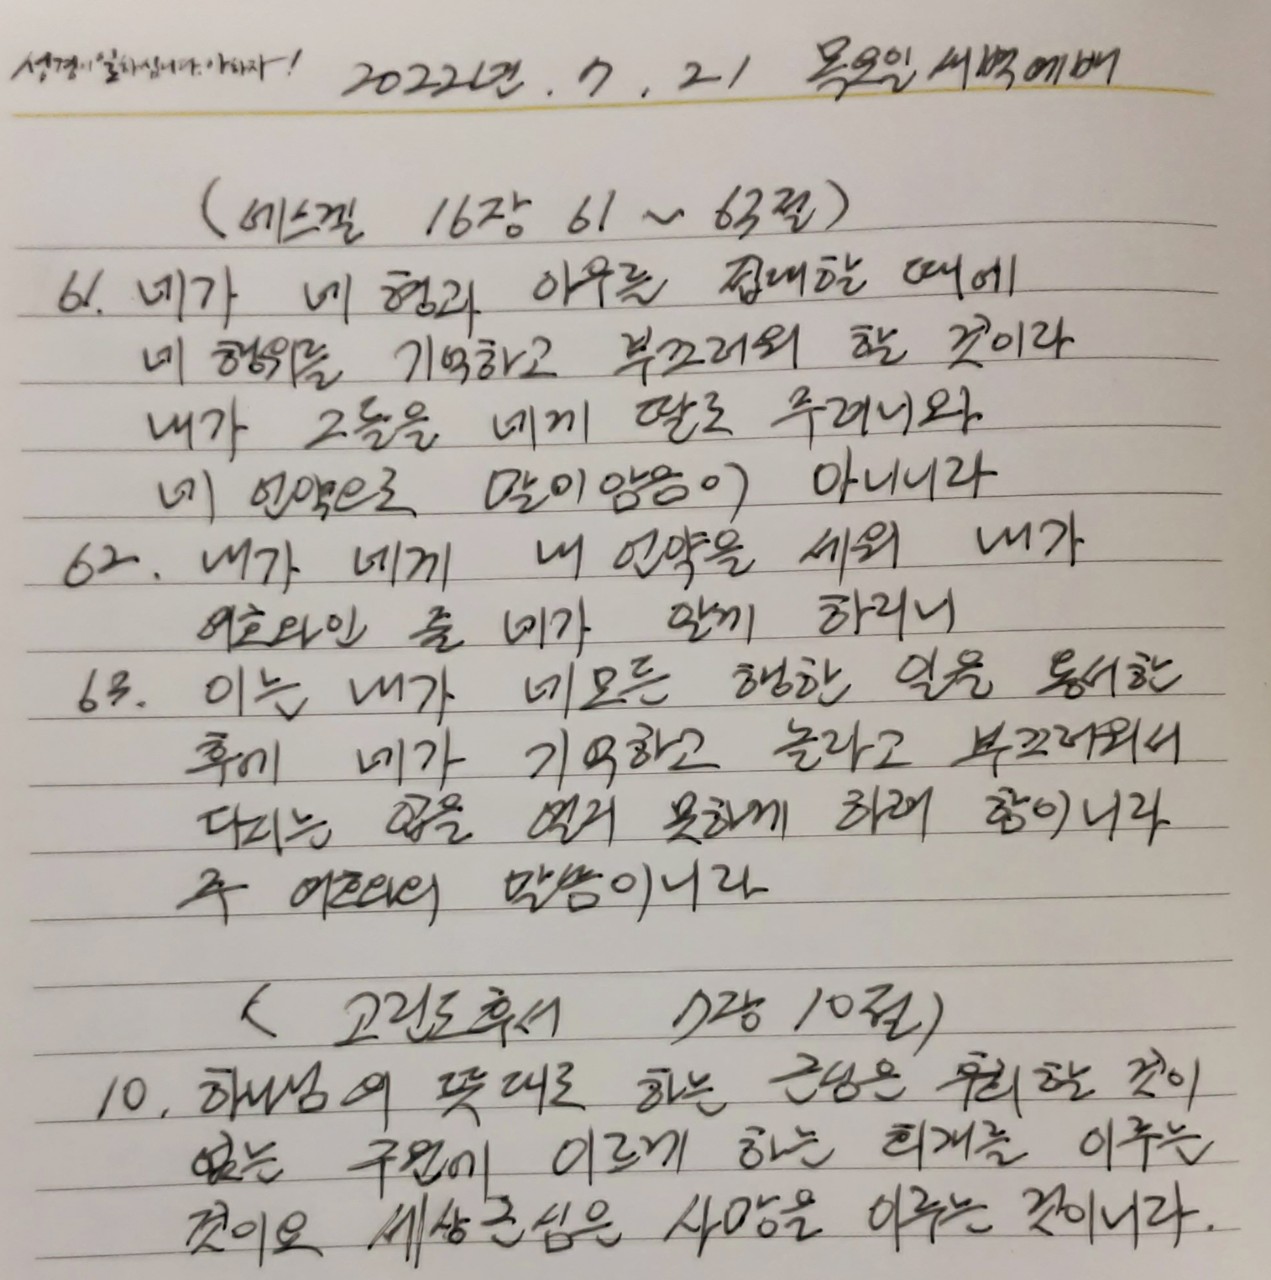 성경이 일하십니다. 아하자! 2022년. 7. 21 목요일 새벽예배
(에스겔 16장 61 ~ 63절)
61. 네가 네 형과 아우를 접대할 때에
네 행위를 기억하고 부끄러워 할 것이라
내가 그들을 네게 딸로 주려니와
네 언약으로 말미암음이 아니니라
62. 내가 네게 내 언약을 세워 내가
여호와인 줄 네가 알게 하리니
63. 이는 내가 네 모든 행한 일을 용서한
후에 네가 기억하고 놀라고 부끄러워서
다시는 입을 열지 못하게 하려 함이니라
주 여호와의 말씀이니라
( 고린도후서 7장 10절)
10. 하나님의 뜻대로 하는 근심은 후회할 것이
없는 구원에 이르게 하는 회개를 이루는
것이요 세상 근심은 사망을 이루는 것이니라.